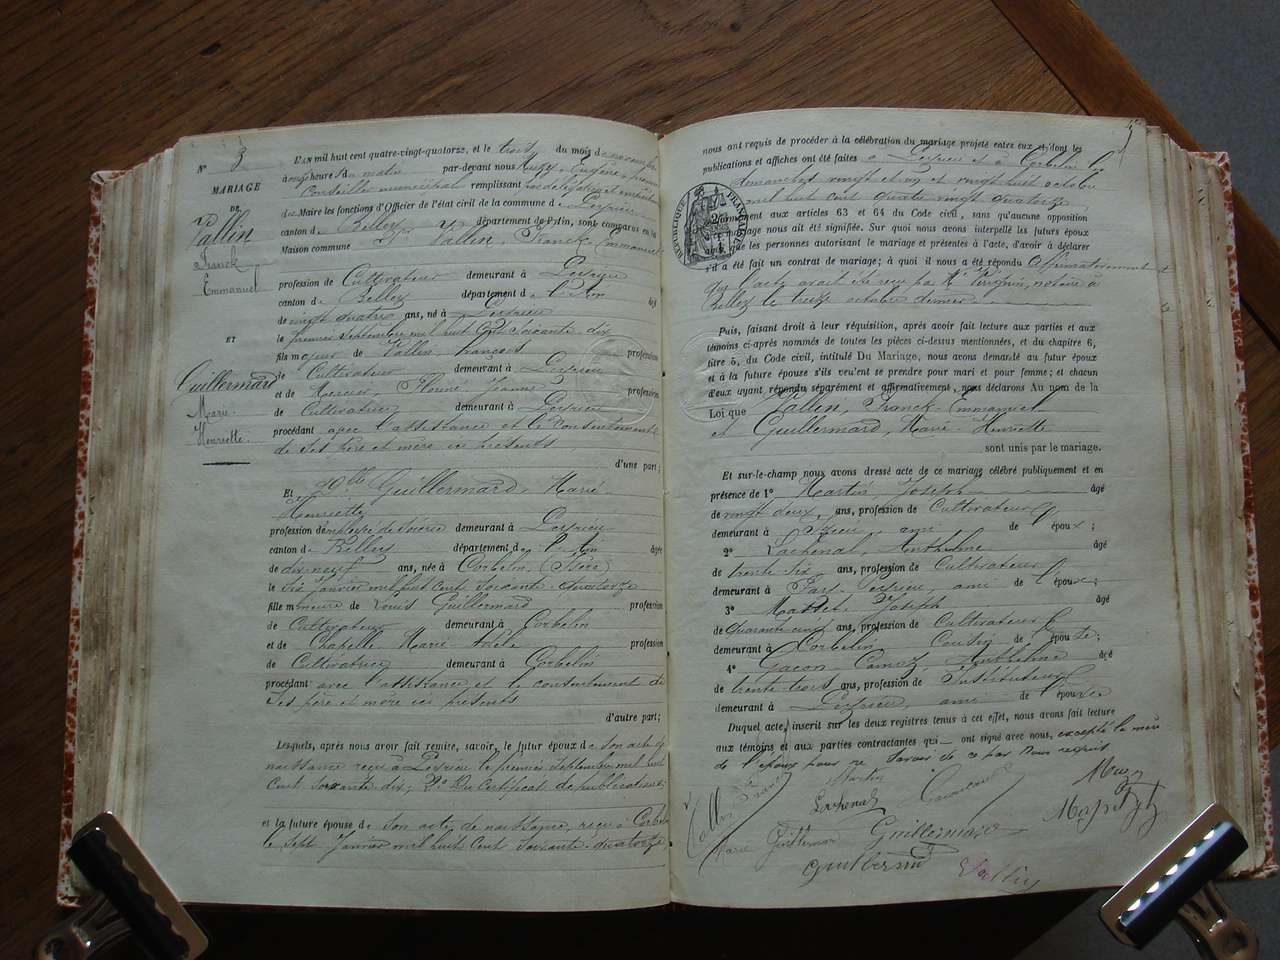 N° 3
MARIAGE
DE
Vallin
Franck
Emmanuel
ET
Guillermard
Marie
Henriette
L'AN mil huit cent quatre-vingt-quatorze, et le trois du mois de novembre
à onze heure du matin par-devant nous Eugène, premier
Conseiller municipal remplissant par délégation
du Maire les fonctions d'Officier de l'état civil de la commune de Peyrieu
canton de Belley département de l'Ain, sont comparus en la
Maison commune Mr Vallin, Franck-Emmanuel
profession de Cultivateur demeurant à Peyrieu
canton de Belley département de l'Ain âgé
de vingt quatre ans, né à Peyrieu
le premier septembre mil huit cent soixante-dix
fils majeur de Vallin, François profession
de Cultivateur demeurant à Peyrieu
et de Mercier, Jeanne profession
de Cultivatrice demeurant à Peyrieu
procédant avec l'assistance et le consentement
de ses père et mère ici présents
d'une part ;
Et Dlle Guillermard, Marie-
Henriette
profession d'employée de soierie demeurant à Peyrieu
canton de Belley département de l'Ain âgée
de dix neuf ans, née à Corbelin (Isère)
le six janvier mil huit cent soixante-quatorze
fille mineure de Louis Guillermard profession
de Cultivateur demeurant à Corbelin
et de Chapelle Marie-Adèle profession
de Cultivatrice demeurant à Corbelin
procédant avec l'assistance et le consentement de
ses père et mère ici présents
d'autre part ;
Lesquels, après nous avoir fait remise, savoir, le futur époux de son acte de
naissance reçu à Peyrieu le premier septembre mil huit
cent soixante dix; 2° Du Certificat de publications
et la future épouse de son acte de naissance, reçu à Corbelin
le sept janvier mil huit cent soixante-quatorze
nous ont requis de procéder à la célébration du mariage projeté entre eux et dont les
publications et affiches ont été faites à Peyrieu et à Corbelin les
dimanches vingt et un et vingt huit octobre
mil huit cent quatre vingt quatorze
RÉPUBLIQUE FRANÇAISE
conformément aux articles 63 et 64 du Code civil, sans qu'aucune opposition
au mariage nous ait été signifiée. Sur quoi nous avons interpellé les futurs époux
ainsi que les personnes autorisant le mariage et présentes à l'acte, d'avoir à déclarer
s'il a été fait un contrat de mariage ; à quoi il nous a été répondu Affirmativement et
que l'acte avait été reçu par Me notaire à
Belley le treize octobre dernier
Puis, faisant droit à leur réquisition, après avoir fait lecture aux parties et aux
témoins ci-après nommés de toutes les pièces ci-dessus mentionnées, et du chapitre 6,
titre 5, du Code civil, intitulé Du Mariage, nous avons demandé au futur époux
et à la future épouse s'ils veulent se prendre pour mari et pour femme ; et chacun
d'eux ayant répondu séparément et affirmativement, nous déclarons Au nom de la
Loi que Vallin, Franck-Emmanuel
et Guillermard, Marie-Henriette
sont unis par le mariage.
Et sur-le-champ nous avons dressé acte de ce mariage célébré publiquement et en
présence de 1° Martin, Joseph âgé
de vingt deux ans, profession de Cultivateur
demeurant à ami de l'époux ;
2° Lachenal, Anthelme âgé
de trente six ans, profession de Cultivateur
demeurant à Peyrieu, ami de l'époux ;
3° Joseph âgé
de quarante cinq ans, profession de Cultivateur
demeurant à Corbelin Cousin de l'épouse ;
4° Anthelme âgé
de trente trois ans, profession de Instituteur
demeurant à Peyrieu, ami de l'épouse
Duquel acte, inscrit sur les deux registres tenus à cet effet, nous avons fait lecture
aux témoins et aux parties contractantes qui ont signé avec nous, excepté la mère
de l'époux pour ne savoir de ce par nous requis
Vallin Franck
Martin
Lachenal
Marie Guillermard
Guillermard